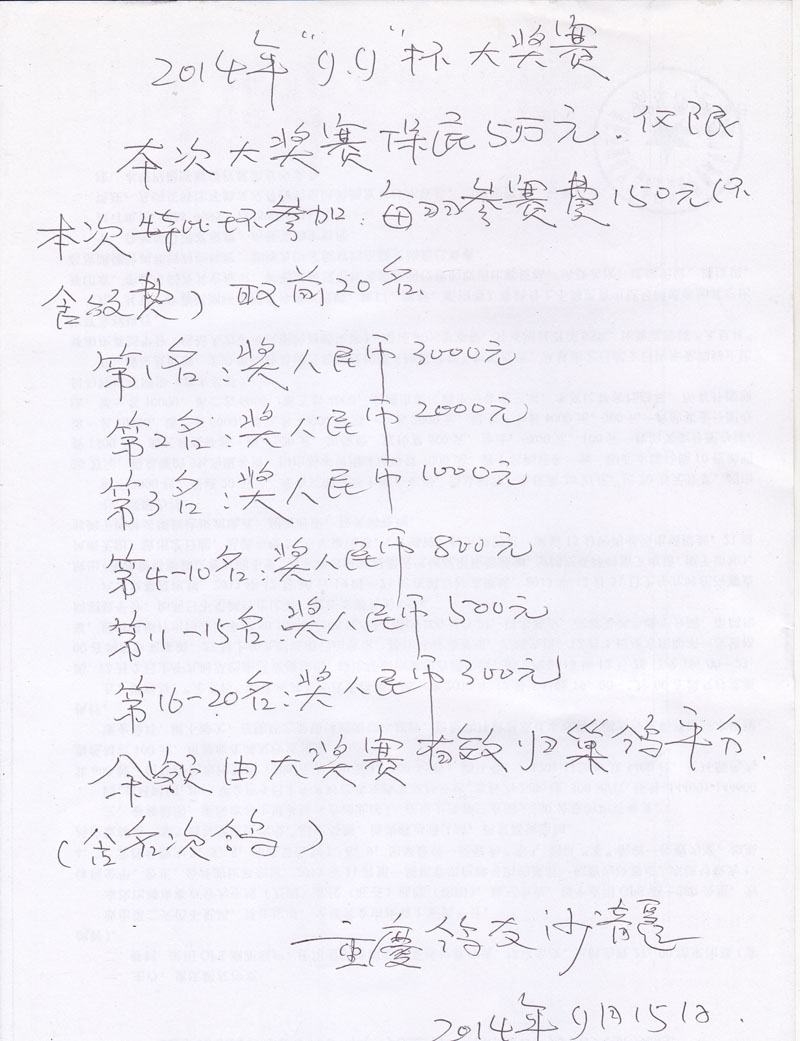 2014年"9.9"杯大奖赛
本次大奖赛保底5万元.仅限
本次特比环参加.每羽参赛费150元(不
含饲费)取前20名.
第1名:奖人民币3000元
第2名:奖人民币2000元
第3名:奖人民币1000元
第4-10名:奖人民币800元
第11-15名:奖人民币500元
第16-20名:奖人民币300元
余额由大奖赛有效归巢鸽平分.
(含名次鸽)
鸽友沙
2014年9月15日.